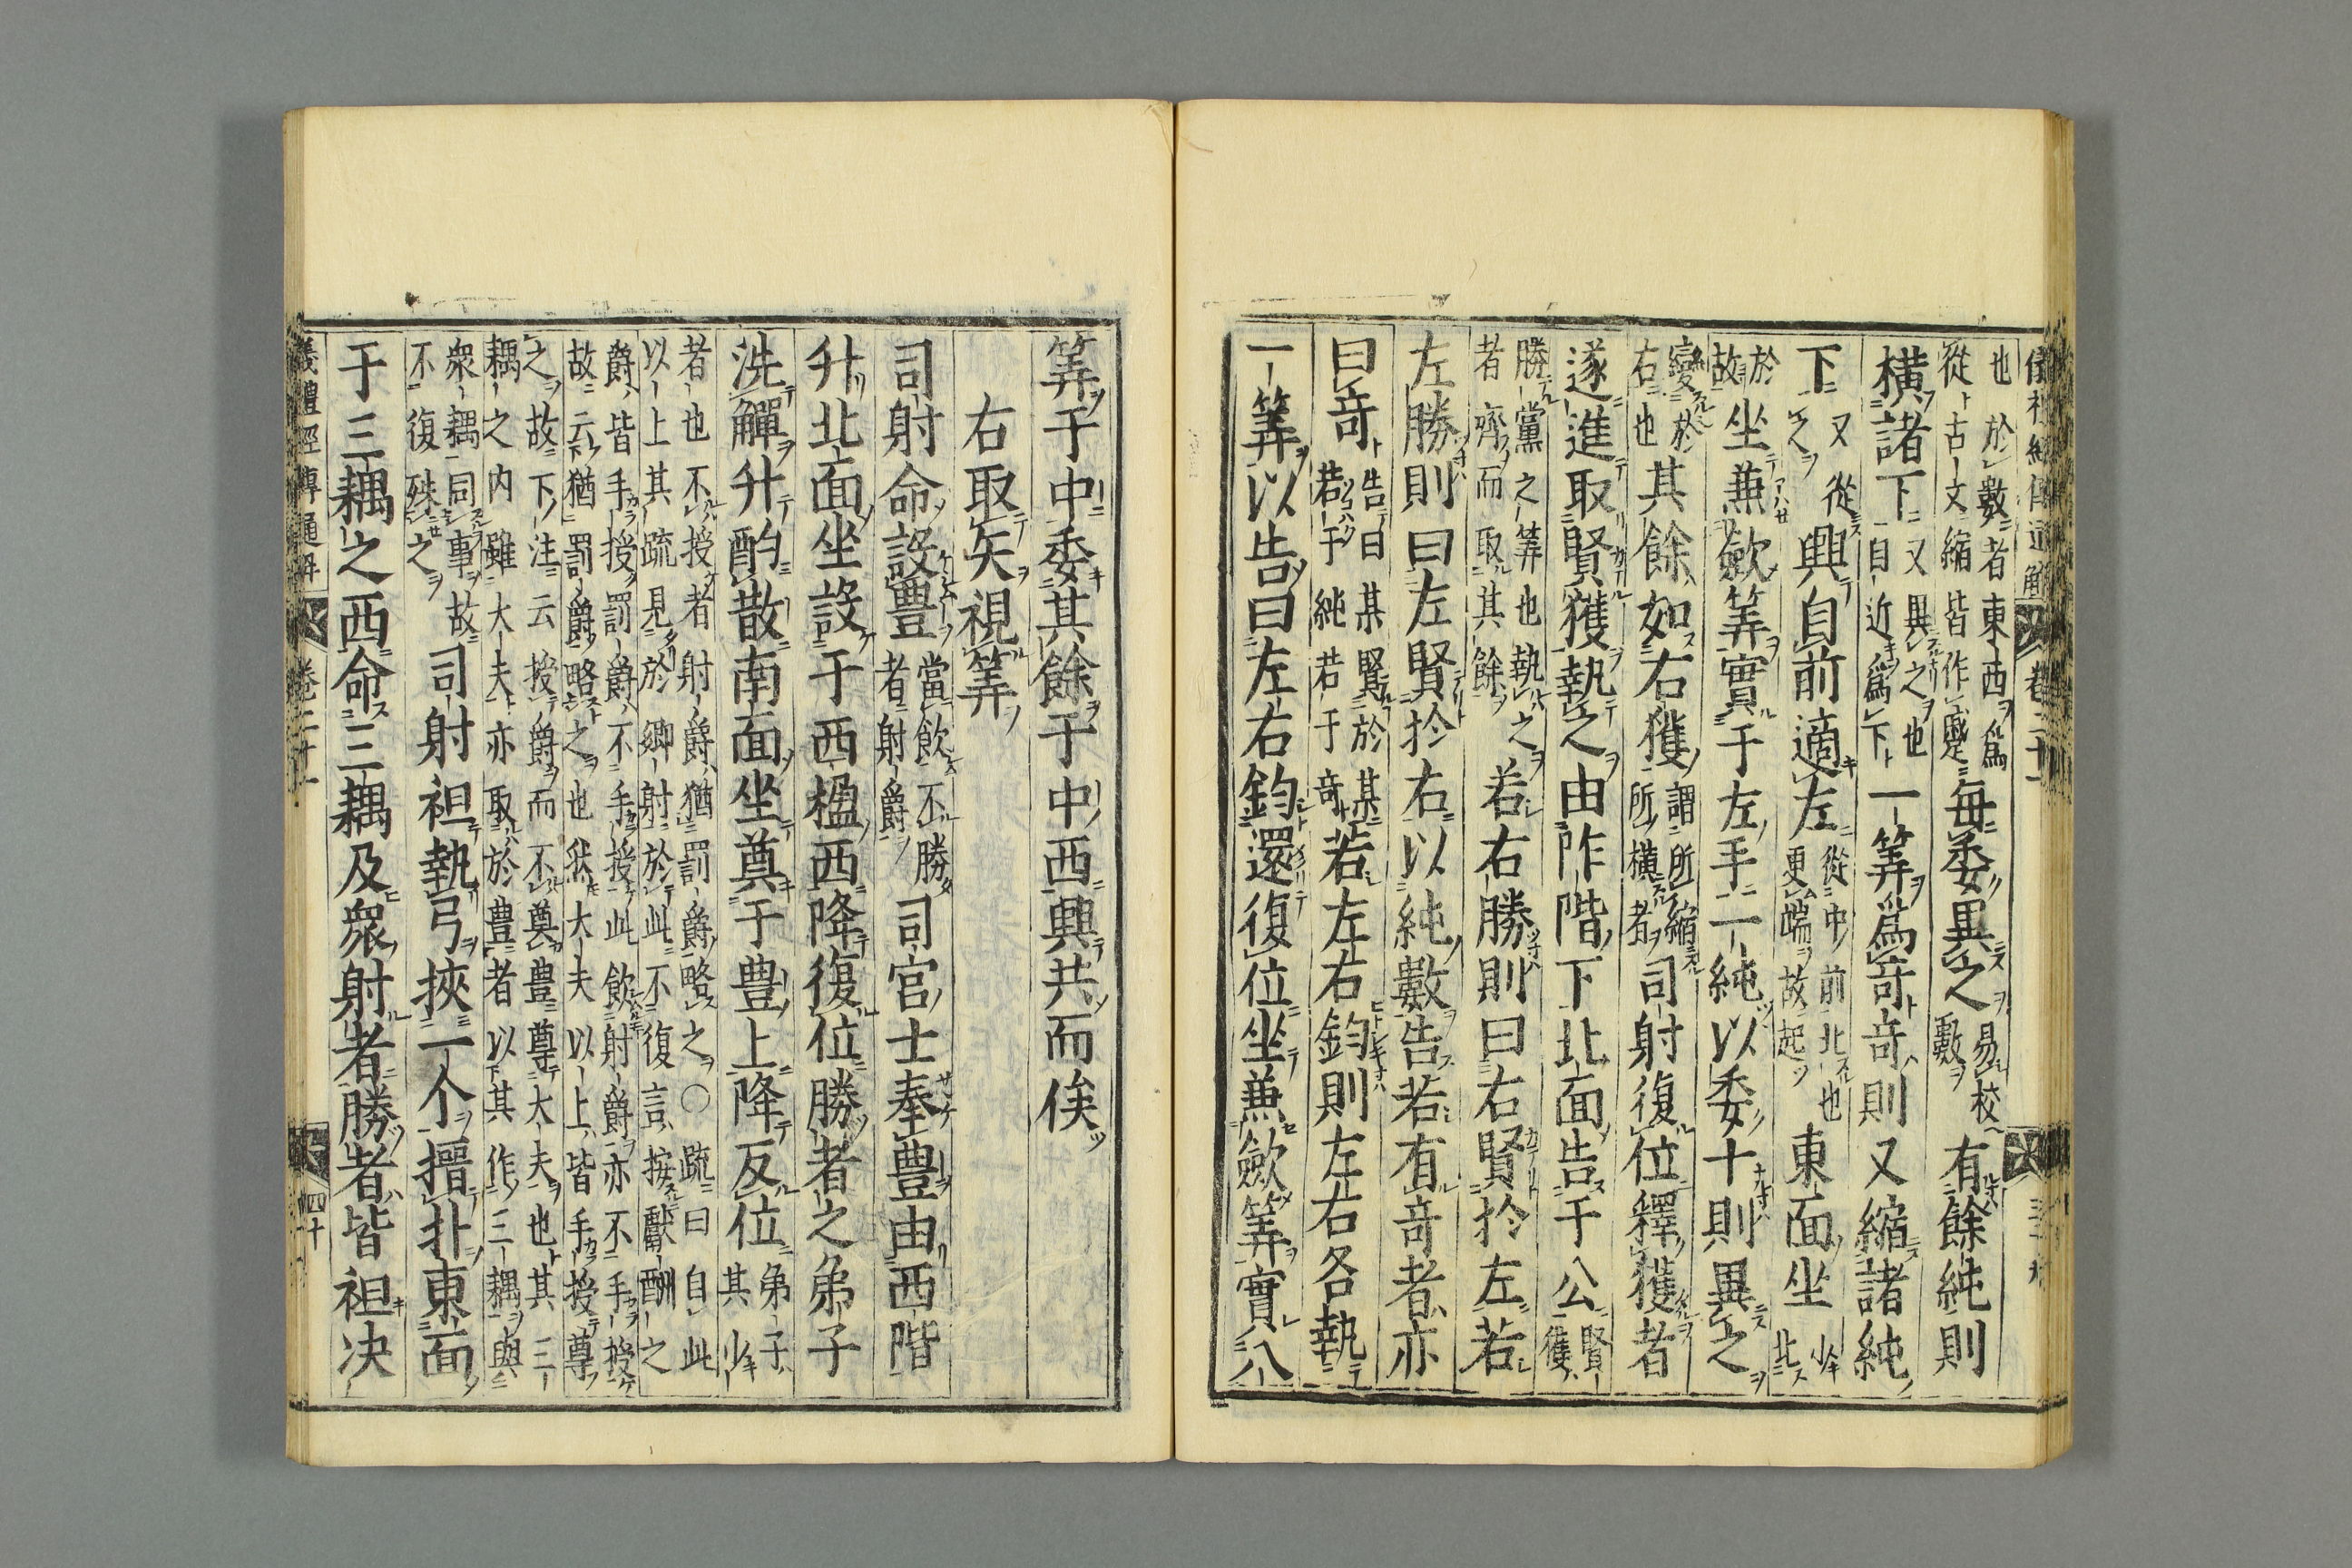 儀禮經傳通解 卷二十一
也於數者東西爲
從古文縮皆作蹙
每委異之
易校
數
有餘純則
橫諸下
又異之也
自近爲下
一筭爲奇奇則又縮諸純
下
又從
之
興自前適左
從中前北也
更端故起
東面坐
少
北
於
故
坐兼歛筭實于左手一純以委十則異之
變於
右也
其餘如右獲
謂所縮
所橫者
司射復位釋獲者
遂進取賢獲執之由阼階下北面告于公
賢
獲
勝黨之筭也執之
者齊而取其餘
若右勝則曰右賢於左若
左勝則曰左賢於右以純數告若有奇者亦
曰奇
告曰某賢於某
若干純若干奇
若左右鈞則左右各執
一筭以告曰左右鈞還復位坐兼歛筭實八
筭于中委其餘于中西興共而俟
右取矢視筭
司射命設豐
當飲不勝
者射爵
司宮士奉豐由西階
升北面坐設于西楹西降復位勝者之弟子
洗觶升酌散南面坐奠于豐上降反位
弟子
其少
者也不授者射爵猶罰爵略之〇疏曰自此
以上其疏見於鄉射於此不復言按獻酬之
爵皆手授罰爵不手授此飲射爵亦不手授
故云猶罰爵略之也然大夫以上皆手授尊
之故下注云授爵而不奠豐尊大夫也其三
耦之内雖大夫亦取於豐者以其作三耦與
衆耦同事故
不復殊之
司射袒執弓挾一个搢扑東面
于三耦之西命三耦及衆射者勝者皆袒决
儀禮經傳通解 卷二十一 四十